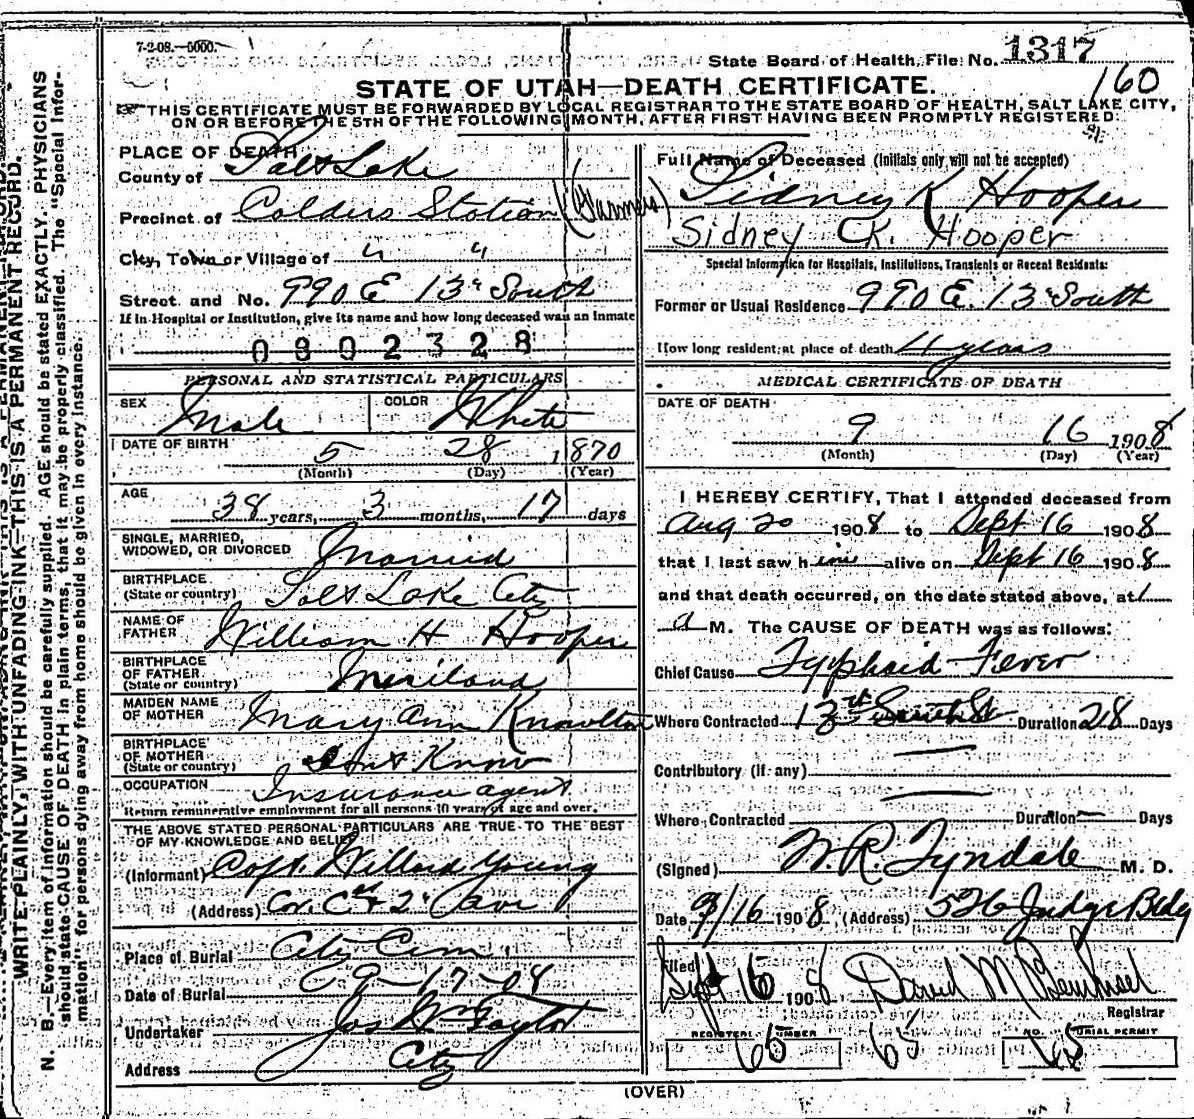 7-2-08.—5000.
State Board of Health, File No. 1317
160
STATE OF UTAH—DEATH CERTIFICATE.
THIS CERTIFICATE MUST BE FORWARDED BY LOCAL REGISTRAR TO THE STATE BOARD OF HEALTH, SALT LAKE CITY,
ON OR BEFORE THE 5TH OF THE FOLLOWING MONTH, AFTER FIRST HAVING BEEN PROMPTLY REGISTERED
WRITE PLAINLY, WITH UNFADING INK—THIS IS A PERMANENT RECORD.
N. B.—Every item of information should be carefully supplied. AGE should be stated EXACTLY. PHYSICIANS
should state CAUSE OF DEATH in plain terms, that it may be properly classified. The "Special Infor-
mation" for persons dying away from home should be given in every instance.
PLACE OF DEATH
County of Salt Lake
Precinct of Calders Station (Farmers)
City, Town or Village of " "
Street and No. 990 E 13" South
If in Hospital or Institution, give its name and how long deceased was an inmate
0802328
PERSONAL AND STATISTICAL PARTICULARS
SEX Male
COLOR White
DATE OF BIRTH
5 28 1870
(Month) (Day) (Year)
AGE
38 years, 3 months, 17 days
SINGLE, MARRIED,
WIDOWED, OR DIVORCED Married
BIRTHPLACE
(State or country) Salt Lake City
NAME OF
FATHER William H Hooper
BIRTHPLACE
OF FATHER
(State or country) Meriland
MAIDEN NAME
OF MOTHER Mary Ann Knowlton
BIRTHPLACE
OF MOTHER
(State or country) Dont Know
OCCUPATION Insurance agent
Return remunerative employment for all persons 10 years of age and over.
THE ABOVE STATED PERSONAL PARTICULARS ARE TRUE TO THE BEST
OF MY KNOWLEDGE AND BELIEF
(Informant) Capt. Willard Young
(Address) Cor. C st & 2" ave
Place of Burial City Cem.
Date of Burial 9-17-08
Undertaker Jos Wm Taylor
Address City
Full Name of Deceased (Initials only will not be accepted)
Sidney K Hooper
Sidney K. Hooper
Special Information for Hospitals, Institutions, Transients or Recent Residents:
Former or Usual Residence 990 E. 13" South
How long resident at place of death 4 years
MEDICAL CERTIFICATE OF DEATH
DATE OF DEATH
9 16 1908
(Month) (Day) (Year)
I HEREBY CERTIFY, That I attended deceased from
Aug 20 1908 to Sept 16 1908
that I last saw him alive on Sept 16 1908
and that death occurred, on the date stated above, at 1
a M. The CAUSE OF DEATH was as follows:
Chief Cause Typhoid Fever
Where Contracted 13th South St Duration 28 Days
Contributory (if any)
Where Contracted Duration Days
(Signed) W.R. Tyndale M. D.
Date 9/16 1908 (Address) 526 Judge Bldg
Filed Sept 16 1908
Registrar
REGISTERED NUMBER 65
65
NO. BURIAL PERMIT 65
(OVER)